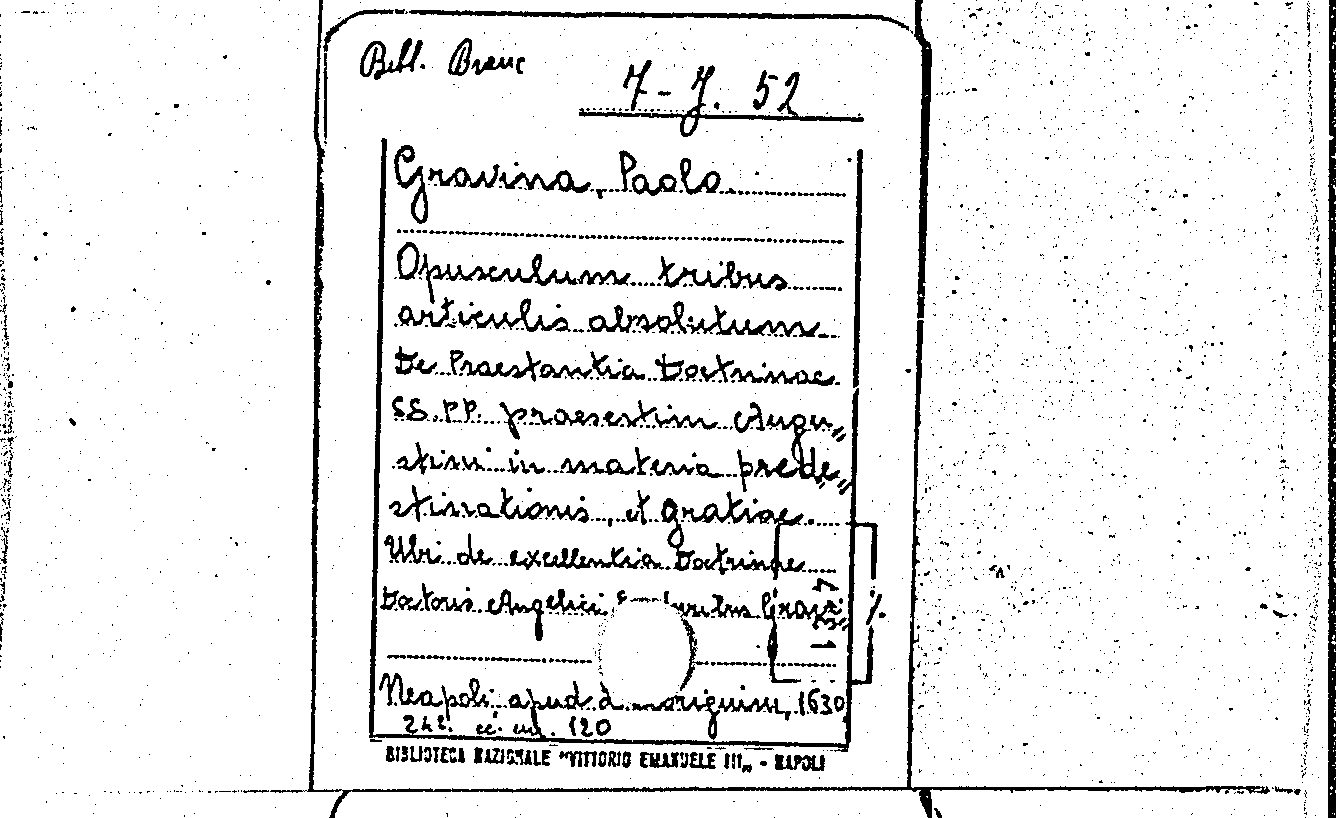 Bibl. Branc
7-J. 52
Gravina, Paolo.
Opusculum tribus
articulis absolutum
De Praestantia Doctrinae
SS.PP. praesertim Augu„
stini in materia prede„
stinationis, et gratiae.
Ubi de excellentia Doctrinae
Doctoris Angelici
Neapoli, apud 1630
24². cc. 120
BIBLIOTECA NAZIONALE "VITTORIO EMANUELE III„ - NAPOLI